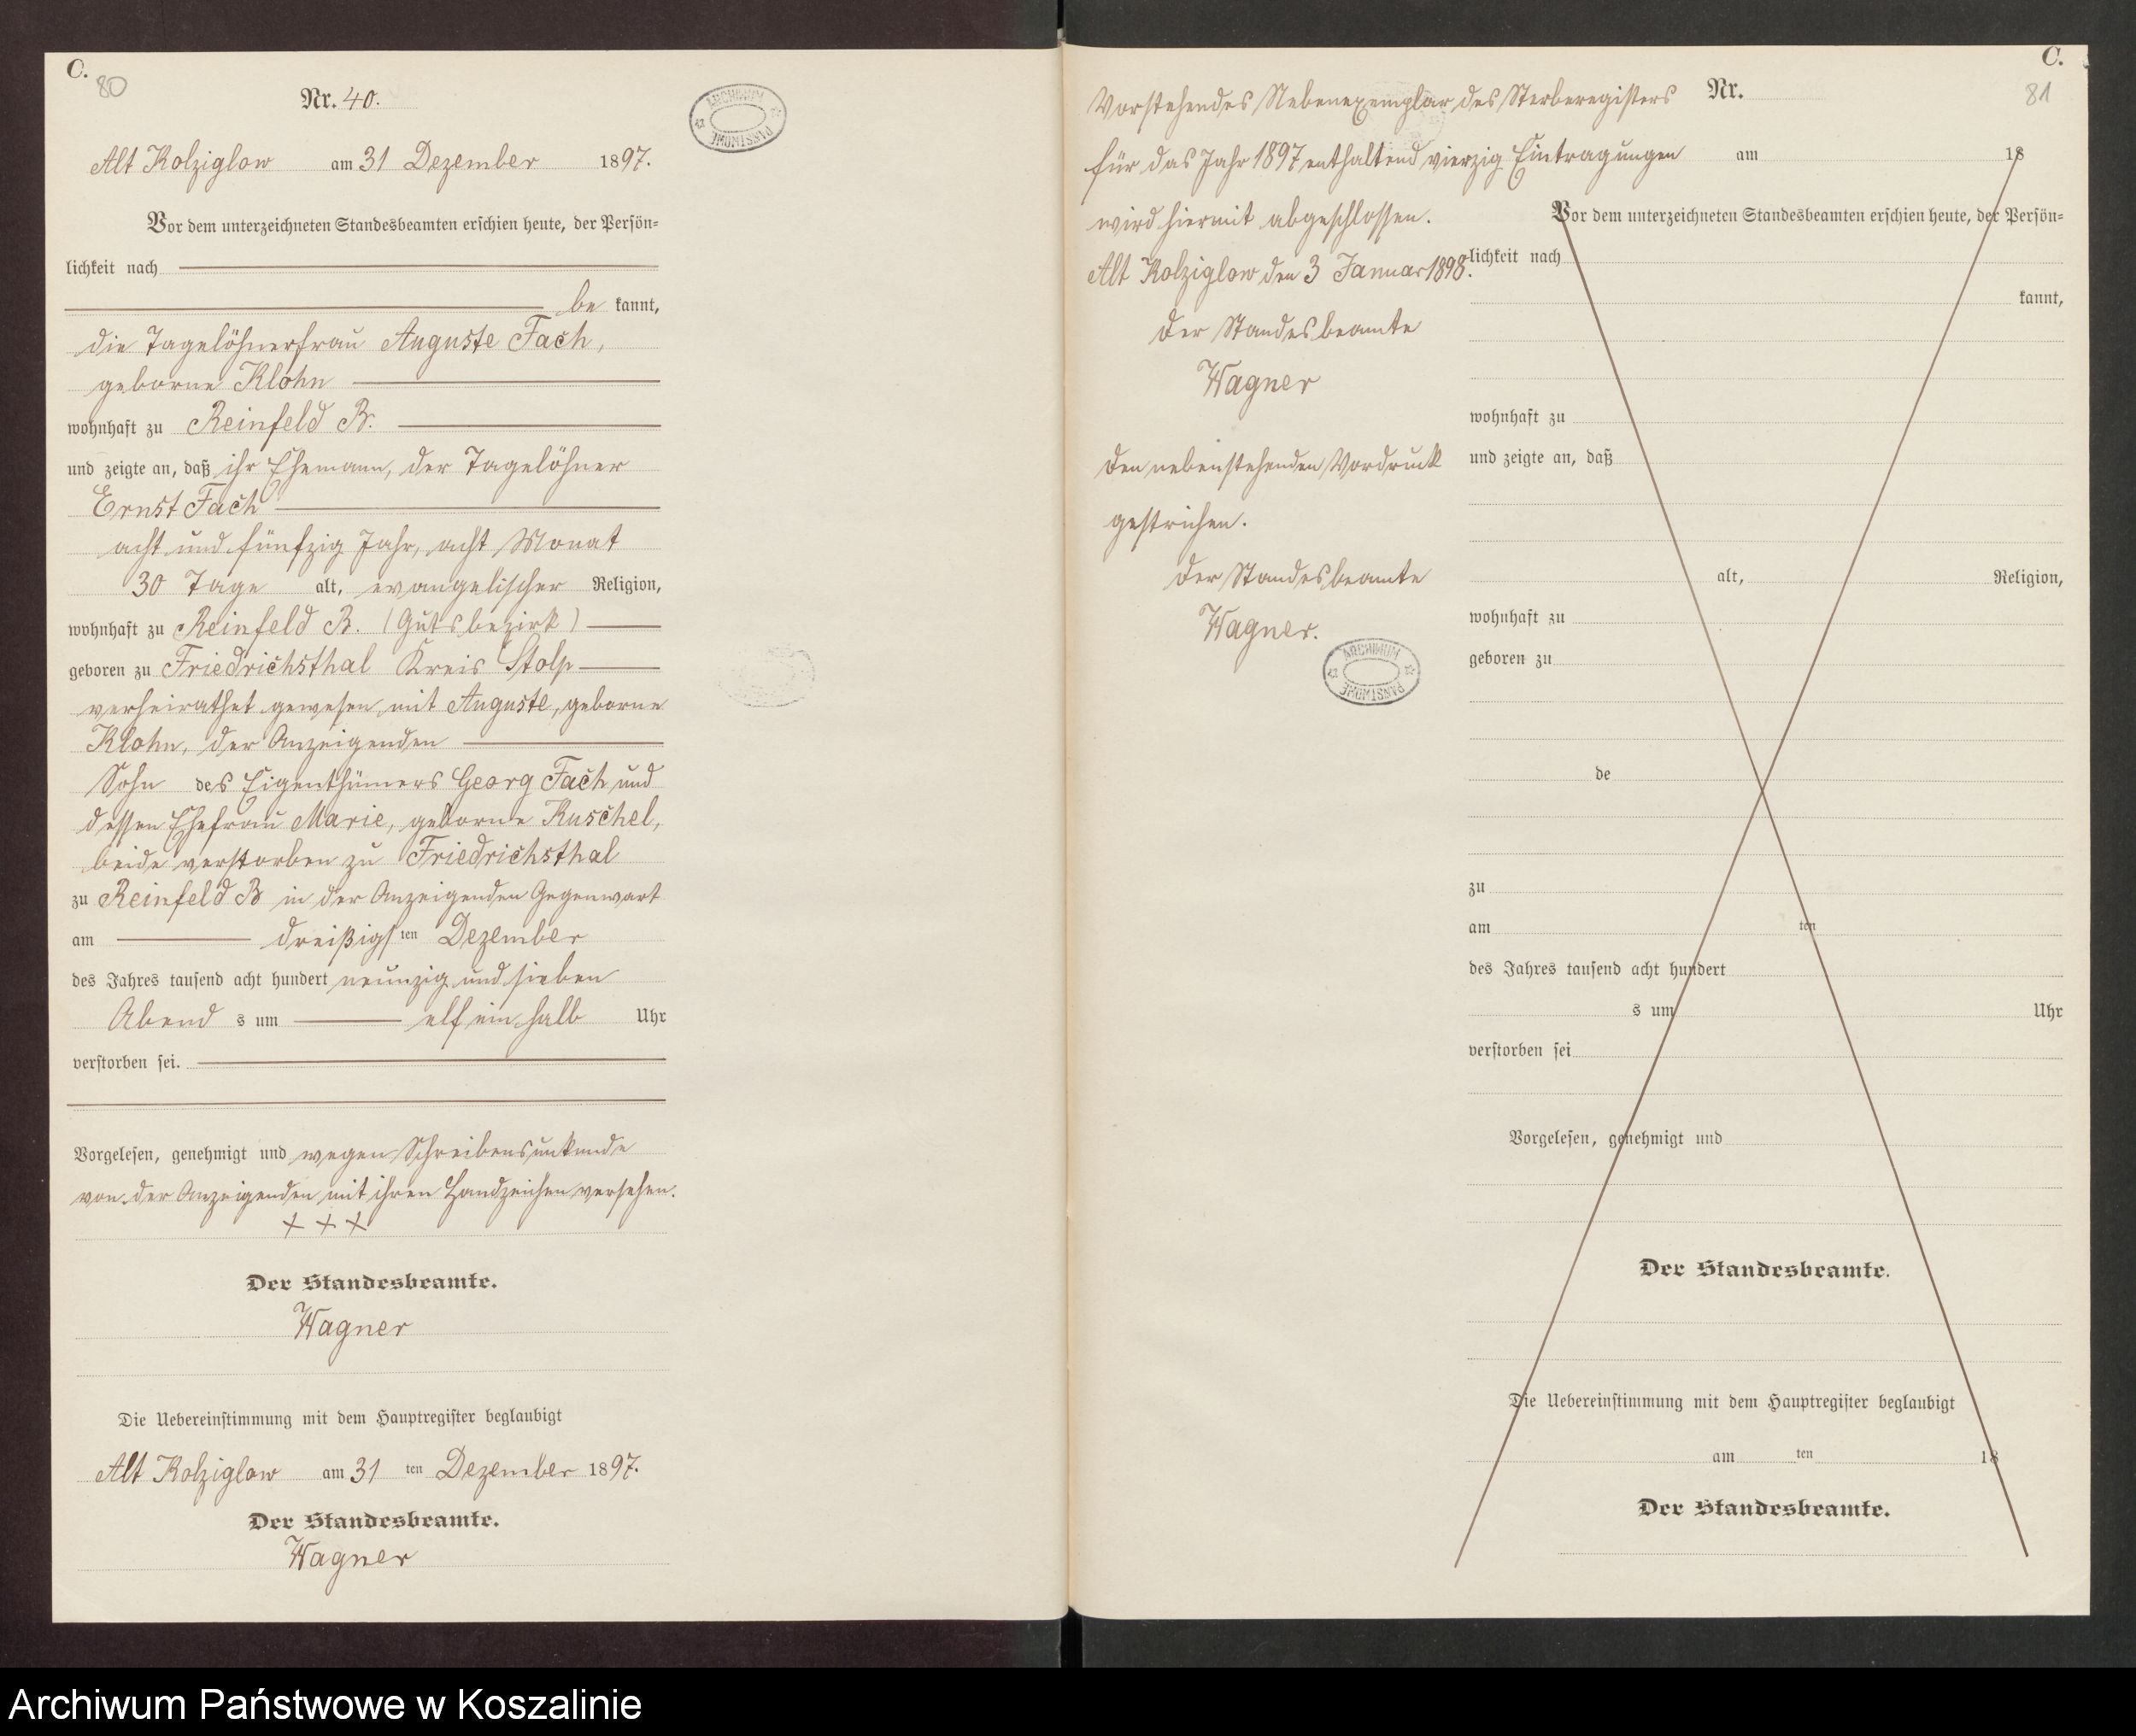 C.
80
Nr. 40.
Alt Kolziglow am 31 Dezember 1897.
Vor dem unterzeichneten Standesbeamten erschien heute, der Persön-
lichkeit nach
be kannt,
die Tagelöhnerfrau Auguste Fach,
geborne Klohn
wohnhaft zu Reinfeld B.
und zeigte an, daß ihr Ehemann, der Tagelöhner
Ernst Fach
acht und fünfzig Jahr, acht Monat
30 Tage alt, evangelischer Religion,
wohnhaft zu Reinfeld B. (Gutsbezirk)
geboren zu Friedrichsthal Kreis Stolp
verheirathet gewesen mit Auguste, geborne
Klohn, der Anzeigenden
Sohn des Eigenthümers Georg Fach und
dessen Ehefrau Marie, geborne Kuschel,
beide verstorben zu Friedrichsthal
zu Reinfeld B in der Anzeigenden Gegenwart
am dreißigs ten Dezember
des Jahres tausend acht hundert neunzig und sieben
Abend s um elf ein halb Uhr
verstorben sei.
Vorgelesen, genehmigt und wegen Schreibensunkunde
von der Anzeigenden mit ihren Handzeichen versehen.
+ + +
Der Standesbeamte.
Wagner
Die Uebereinstimmung mit dem Hauptregister beglaubigt
Alt Kolziglow am 31 ten Dezember 1897.
Der Standesbeamte.
Wagner
ARCHIWUM PAŃSTWOWE
C.
81
Vorstehendes Nebenexemplar des Sterberegisters
für das Jahr 1897 enthaltend vierzig Eintragungen
wird hiermit abgeschlossen.
Alt Kolziglow den 3 Januar 1898.
Der Standesbeamte
Wagner
Den nebenstehenden Vordruck
gestrichen.
Der Standesbeamte
Wagner.
ARCHIWUM PAŃSTWOWE
Nr.
am 18
Vor dem unterzeichneten Standesbeamten erschien heute, der Persön-
lichkeit nach
kannt,
wohnhaft zu
und zeigte an, daß
alt, Religion,
wohnhaft zu
geboren zu
de
zu
am ten
des Jahres tausend acht hundert
s um Uhr
verstorben sei
Vorgelesen, genehmigt und
Der Standesbeamte.
Die Uebereinstimmung mit dem Hauptregister beglaubigt
am ten 18
Der Standesbeamte.
Archiwum Państwowe w Koszalinie